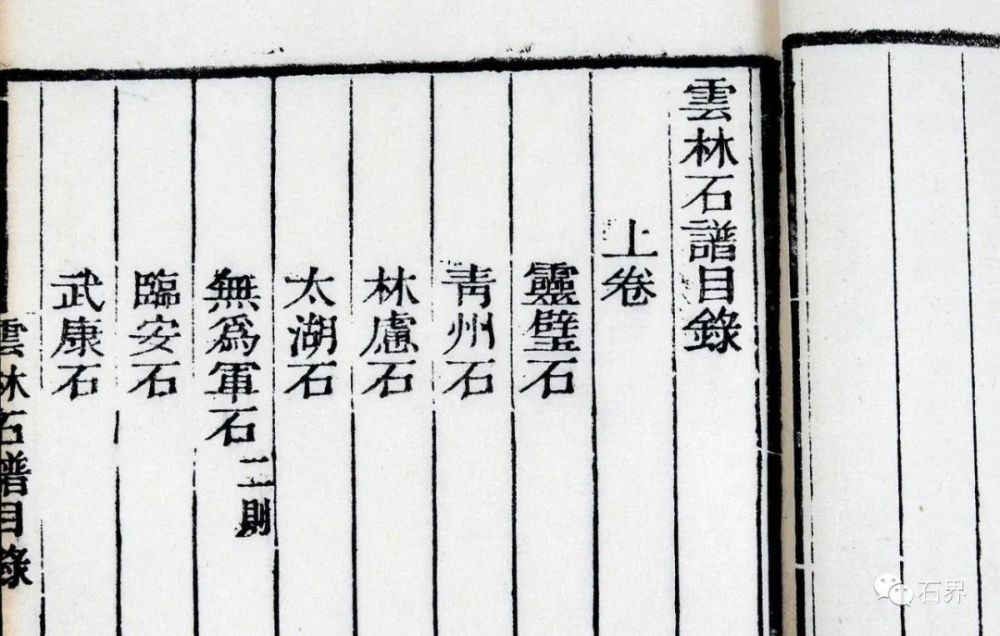 雲林石譜目錄
上卷
靈璧石
青州石
林慮石
太湖石
無爲軍石二則
臨安石
武康石
雲林石譜目錄
石界